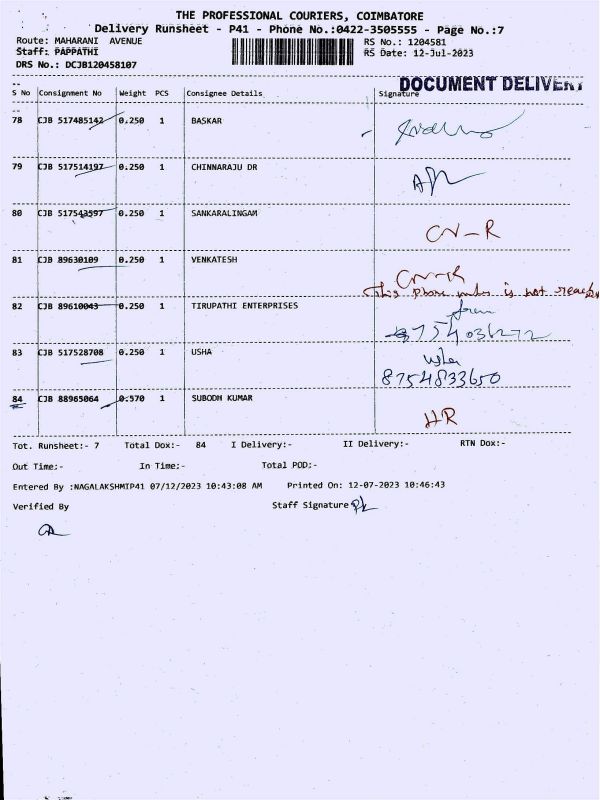 THE PROFESSIONAL COURIERS, COIMBATORE
Delivery Runsheet - P41 - Phone No.:0422-3505555 - Page No.:7
Route: MAHARANI AVENUE RS No.: 1204581
Staff: PAPPATHI RS Date: 12-Jul-2023
DRS No.: DCJB120458107
DOCUMENT DELIVERY
S No Consignment No Weight PCS Consignee Details Signature
78 CJB 517485142 0.250 1 BASKAR
79 CJB 517514197 0.250 1 CHINNARAJU DR
80 CJB 517543597 0.250 1 SANKARALINGAM CN-R
81 CJB 89630109 0.250 1 VENKATESH CN-R
This phone number is not reach
82 CJB 89610043 0.250 1 TIRUPATHI ENTERPRISES
8754036272
83 CJB 517528708 0.250 1 USHA Usha
8754833650
84 CJB 88965064 0.570 1 SUBODH KUMAR HR
Tot. Runsheet:- 7 Total Dox:- 84 I Delivery:- II Delivery:- RTN Dox:-
Out Time:- In Time:- Total POD:-
Entered By :NAGALAKSHMIP41 07/12/2023 10:43:08 AM Printed On: 12-07-2023 10:46:43
Verified By Staff Signature